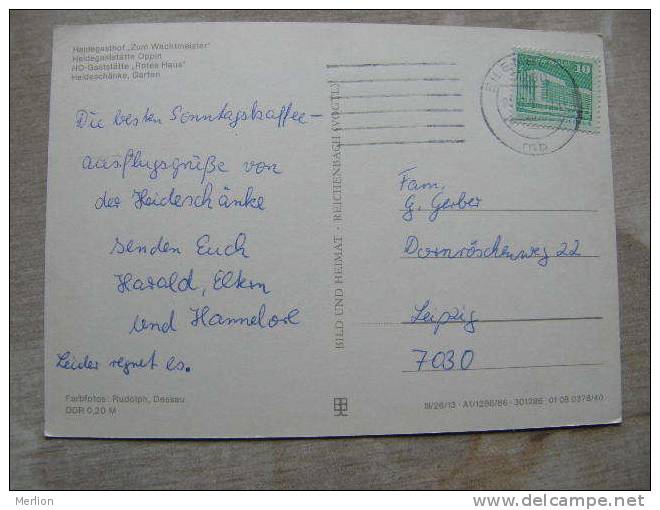 Heidegasthof „Zum Wachtmeister"
Heidegaststätte Oppin
HO-Gaststätte „Rotes Haus"
Heideschänke, Garten
Die besten Sonntagskaffee-
ausflugsgrüße von
der Heideschänke
senden Euch
Harald, Eltern
und Hannelore
Leider regnet es.
Farbfotos: Rudolph, Dessau
DDR 0,20 M
BILD UND HEIMAT · REICHENBACH (VOGTL)
10
Fam.
G. Gerber
Dornröschenweg 22
Leipzig
7030
III/26/13 · A1/1286/86 · 301286 01 08 0378/40
Merlion
www.delcampe.net